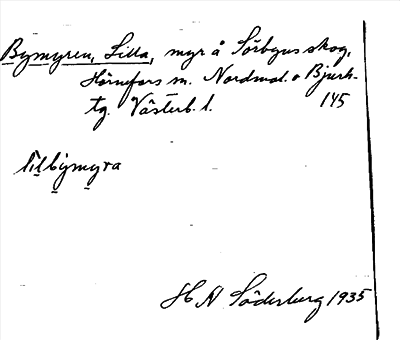 Bymyren, Lilla, myr å Sörbyns skog,
Hörnefors sn. Nordmal. o Bjurh-
tg. Västerb. l. 145
lilbymyra
H N Söderberg 1935